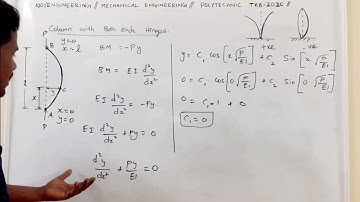 100%ENGINEERING // MECHANICAL ENGINEERING // POLYTECHNIC TRB-2020 //
Column with Both ends Hinged.
P
B y=0
x=l
l
x
C
A x=0
y=0
P
BM = -Py
BM = EI d²y/dx²
EI d²y/dx² = -Py
EI d²y/dx² + Py = 0
d²y/dx² + Py/EI = 0
-ve
+ve
y = C₁ cos [x √P/EI] + C₂ Sin [x √P/EI]
0 = C₁ cos [0 √P/EI] + C₂ Sin [0 √P/EI]
0 = C₁ × 1 + 0
C₁ = 0